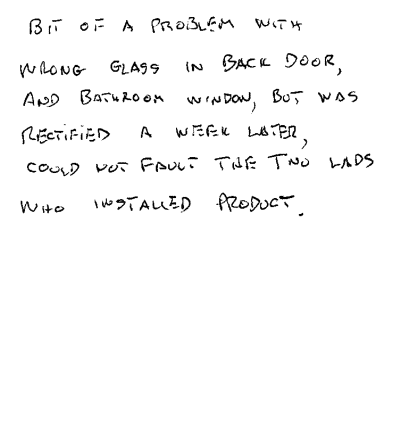 BIT OF A PROBLEM WITH
WRONG GLASS IN BACK DOOR,
AND BATHROOM WINDOW, BUT WAS
RECTIFIED A WEEK LATER,
COULD NOT FAULT THE TWO LADS
WHO INSTALLED PRODUCT.